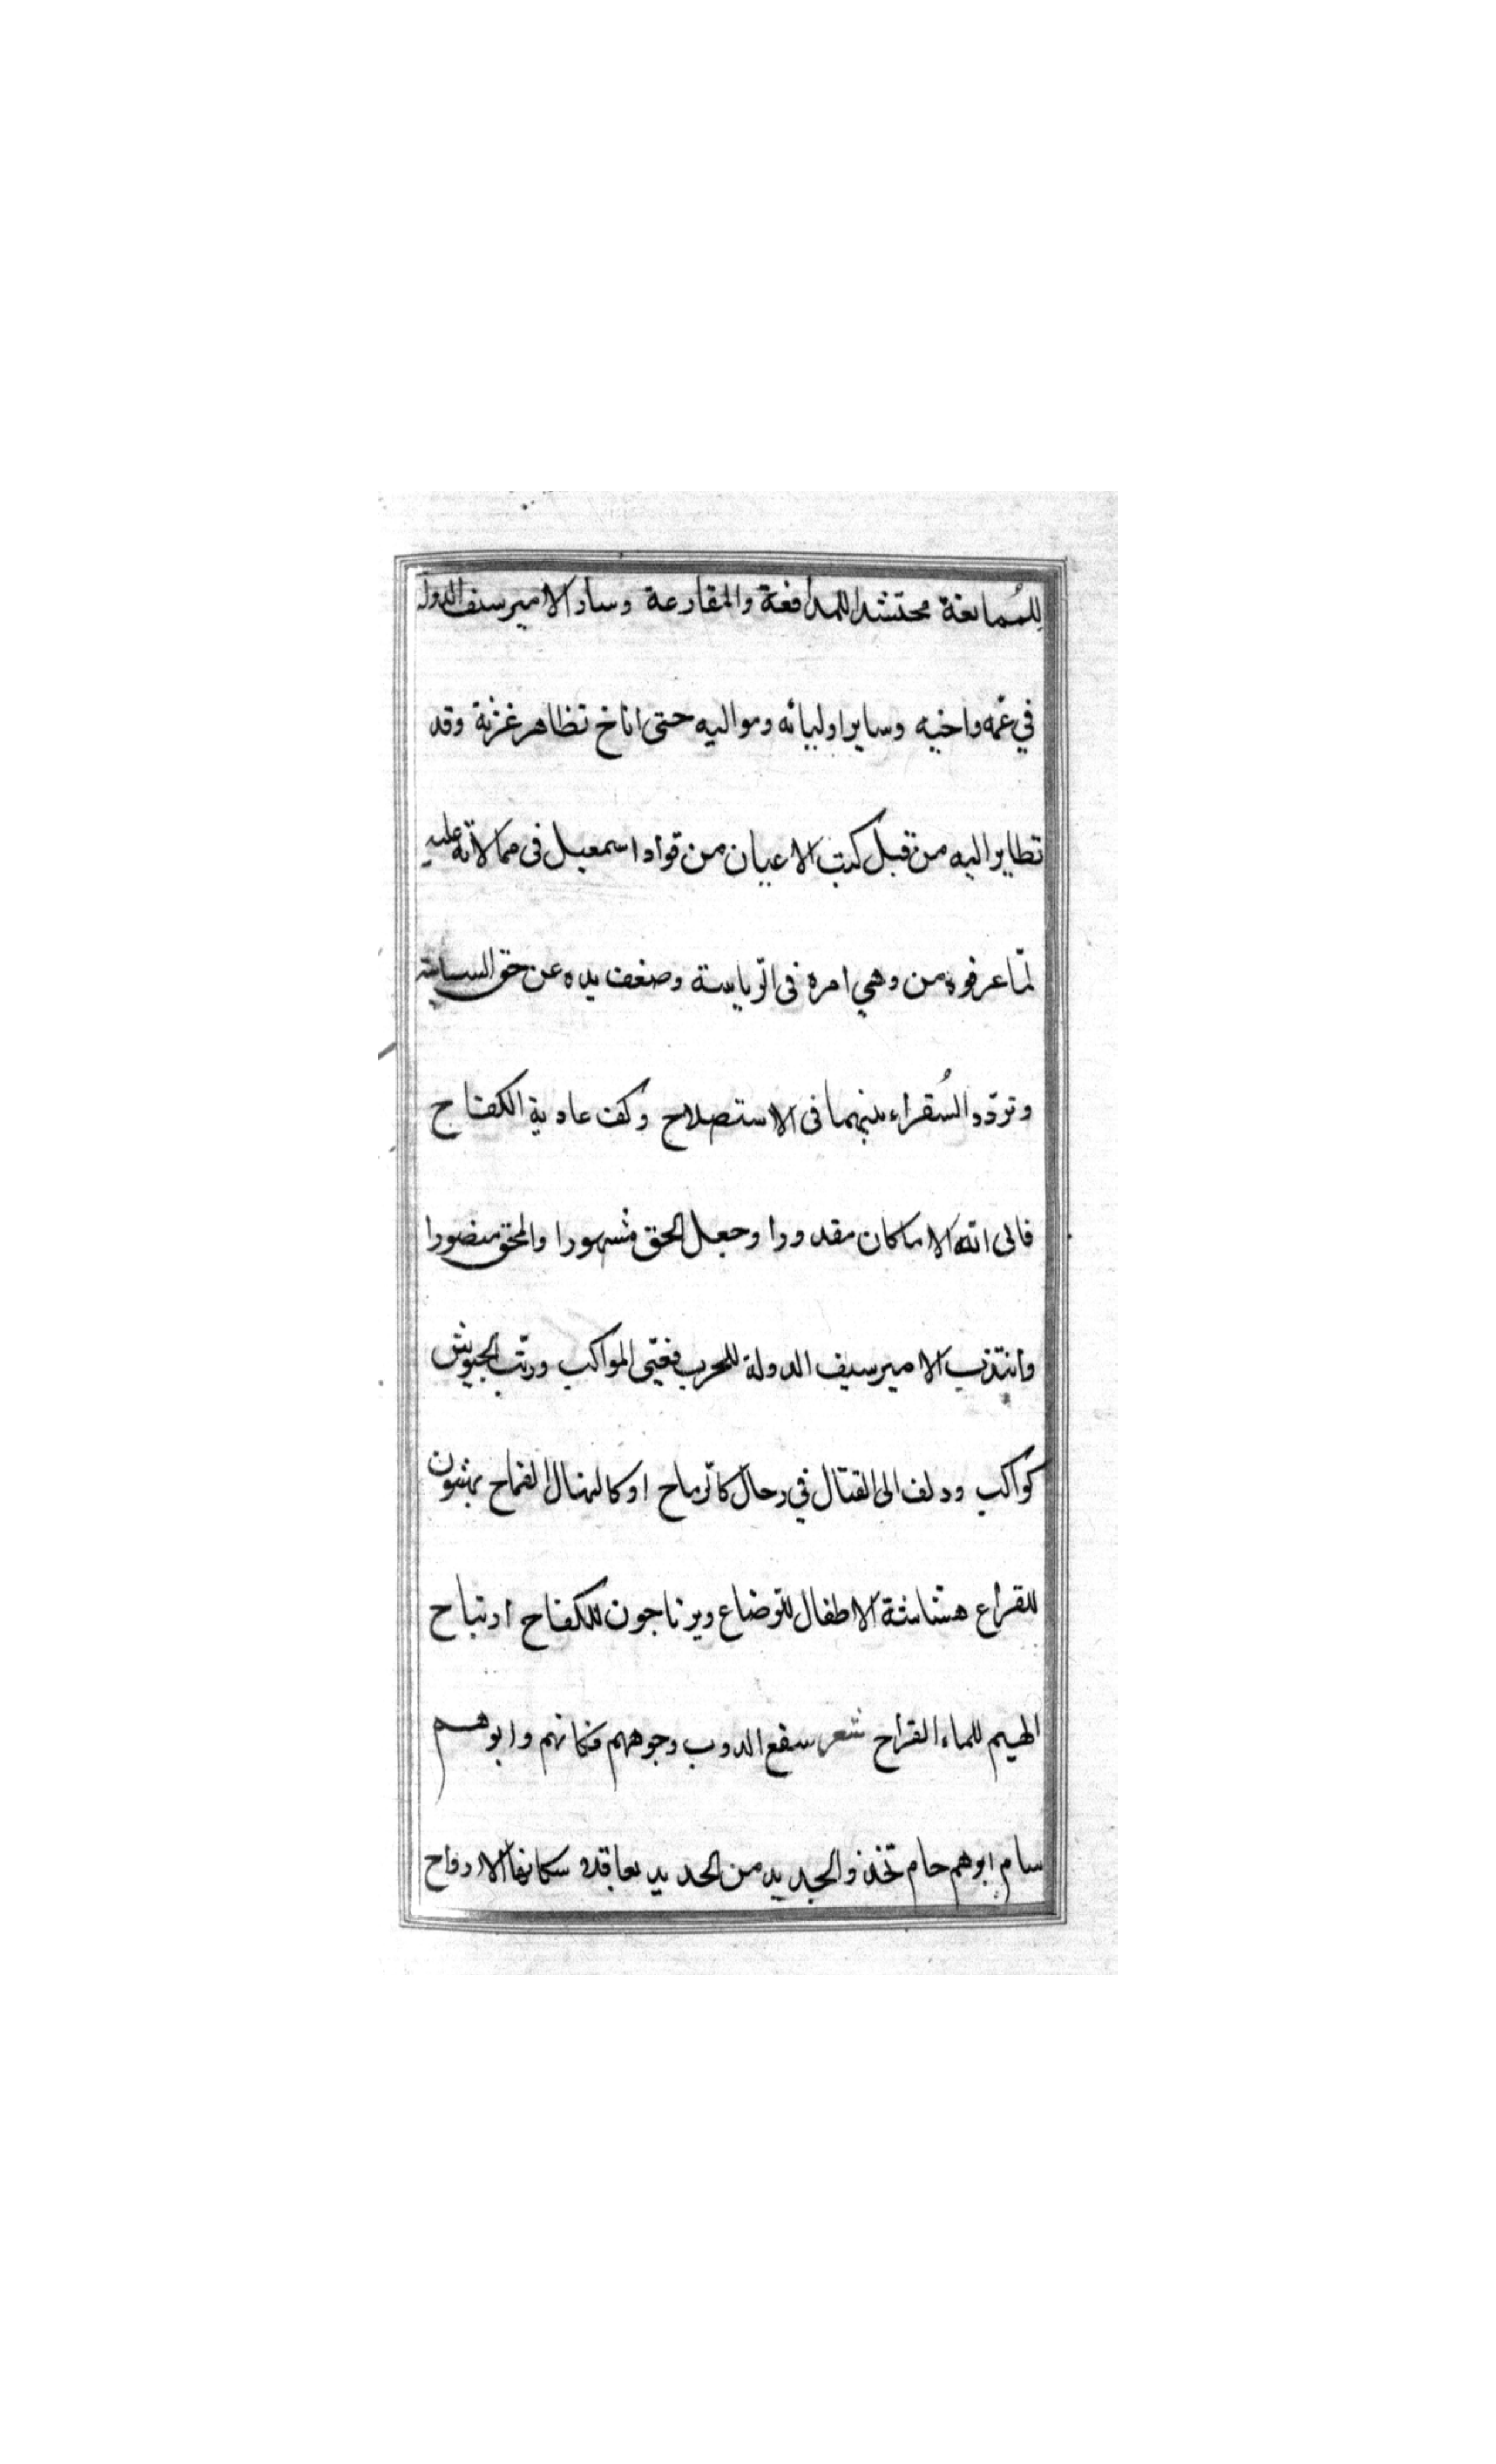 للمُمانعة محتشدا للمدافعة والمقارعة وسار الامير سيف الدولة
في عمّه واخيه وساير اوليائه ومواليه حتى اناخ بظاهر غزنة وقد
تطاير اليه من قبل كتب الاعيان من قواد اسمعيل في ممالاته عليه
لمّا عرفوه من وهي امره في الرّياسة وضعف يده عن حق السياسة
وتردّد السُفراء بينهما في الاستصلاح وكف عادية الكفاح
فابى الله الا ما كان مقدورا وجعل الحق مشهورا والمحق منصورا
وانتدب الامير سيف الدولة للحرب فعبّى المواكب ورتّب الجيوش
كواكب ودلف الى القتال في رجال كالرّماح او كالنهال القماح يهشون
للقراع هشاشة الاطفال للرّضاع ويرتاجون للكفاح ارتياح
الهيم للماء القراح شعر سفع الدوب وجوههم فكانهم وابوهم
سام ابوهم حام تخذوا الجديد من الحديد معاقدا سكانها الارواح